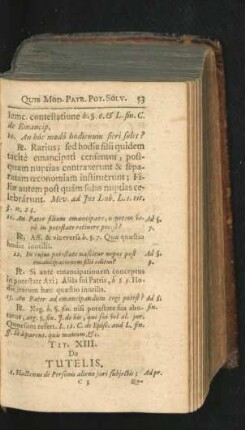 QUIB. MOD. PATR. POT. SOLV. 53
lemc. contestatione h. §. 6. & L. fin. C.
de Emancip.
10. An hoc modò hodiernum fieri solet?
℞. Rariùs; sed hodie filii quidem
tacitè emancipati censentur, post-
quam nuptias contraxerunt & sepa-
ratam œconomiam instituerunt; Fi-
liæ autem post quàm suas nuptias ce-
lebrârunt. Mev. ad Jus Lub. L. 1. tit.
n. 23.
11. An Pater filium emancipare, & potem Ad §.
in potestate retinere possit? 7.
℞. Aff. & viceversâ h. §. 7. Quæ quæstio
hodie inutilis.
12. In cujus potestate nascitur nepos post Ad §.
emancipationem filii editus? 9.
℞. Si ante emancipationem conceptus
in potestate Avi; Aliàs sui Patris, h. §. 9. Ho-
die iterum hæc quæstio inutilis.
13. An Pater ad emancipandum cogi potest? Ad §.
℞. Neg. h. §. fin. nisi potestate suâ abu-
tatur, arg. §. fin. J. de his, qui sui vel al. jur.
Quæstioni refert. L. 12. C. de Episc. aud. L. fin.
TIT. XIII.
De
TUTELIS.
1. Hactenus de Personis alieno juri subjectis; Ad pr.
C 3